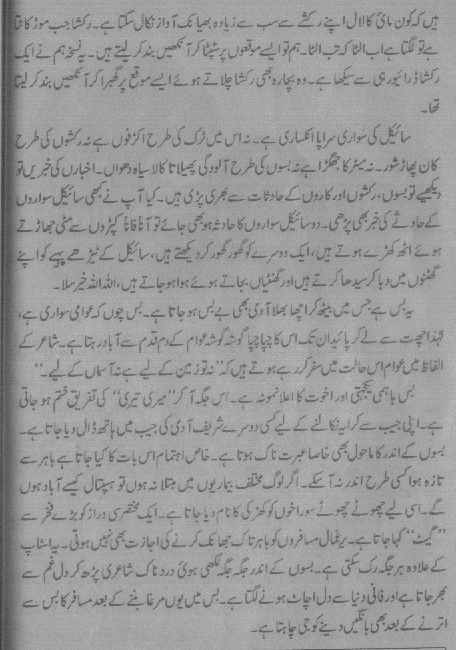 ہیں کہ کون مائی کا لال اپنے رکشے سے سب سے زیادہ بھیانک آواز نکال سکتا ہے۔ رکشا جب موڑ کاٹتا
ہے تو لگتا ہے اب الٹا کہ تب الٹا۔ ہم تو ایسے موقعوں پر سٹپٹا کر آنکھیں بند کر لیتے ہیں۔ یہ نسخہ ہم نے ایک
رکشا ڈرائیور ہی سے سیکھا ہے۔ وہ بچارہ بھی رکشا چلاتے ہوئے ایسے موقع پر گھبرا کر آنکھیں بند کر لیتا
تھا۔
سائیکل کی سواری سراپا انکساری ہے۔ نہ اس میں ٹرک کی طرح اکڑفوں ہے نہ رکشوں کی طرح
کان پھاڑ شور۔ نہ میٹر کا جھگڑا ہے نہ بسوں کی طرح آلودگی پھیلاتا کالا سیاہ دھواں۔ اخباری کی خبریں تو
دیکھیے تو بسوں، رکشوں اور کاروں کے حادثات سے بھری پڑی ہیں۔ کیا آپ نے کبھی سائیکل سواروں
کے حادثے کی خبر بھی پڑھی۔ دو سائیکل سواروں کا حادثہ ہو بھی جائے تو آناً فاناً کپڑوں سے مٹی جھاڑتے
ہوئے اٹھ کھڑے ہوتے ہیں، ایک دوسرے کو گھور گھور کر دیکھتے ہیں، سائیکل کے ٹیڑھے پہیے کو اپنے
گھٹنوں میں دبا کر سیدھا کرتے ہیں اور گھنٹیاں بجاتے ہوئے ہوا ہو جاتے ہیں، اللہ اللہ خیر سلا۔
یہ بس ہے جس میں بیٹھ کر اچھا بھلا آدمی بھی بے بس ہو جاتا ہے۔ بس چوں کہ عوامی سواری ہے،
لہٰذا چھت سے لے کر پائیدان تک اس کا چپا چپا گوشہ گوشہ عوام کے دم قدم سے آباد رہتا ہے۔ شاعر کے
الفاظ میں عوام اس حالت میں سفر کر رہے ہوتے ہیں کہ ”نہ تو زمین کے لیے ہے نہ آسماں کے لیے۔“
بس باہمی یکجہتی اور اخوت کا اعلا نمونہ ہے۔ اس جگہ آ کر ”میری تیری“ کی تفریق ختم ہو جاتی
ہے۔ اپنی جیب سے کرایہ نکالنے کے لیے کسی دوسرے شریف آدمی کی جیب میں ہاتھ ڈال دیا جاتا ہے۔
بسوں کے اندر کا ماحول بھی خاصا عبرت ناک ہوتا ہے۔ خاص اہتمام اس بات کا کیا جاتا ہے باہر سے
تازہ ہوا کسی طرح اندر نہ آ سکے۔ اگر لوگ مختلف بیماریوں میں مبتلا نہ ہوں تو ہسپتال کیسے آباد ہوں
گے۔ اسی لیے چھوٹے چھوٹے سوراخوں کو کھڑکی کا نام دیا جاتا ہے۔ ایک مختصر سی دراز کو بڑے فخر سے
”گیٹ“ کہا جاتا ہے۔ یرغمال مسافروں کو باہر تاک جھانک کرنے کی اجازت بھی نہیں ہوتی۔ یہ اسٹاپ
کے علاوہ ہر جگہ رک سکتی ہے۔ بسوں کے اندر جگہ جگہ لکھی ہوئی درد ناک شاعری پڑھ کر دل غم سے
بھر جاتا ہے اور فانی دنیا سے دل اچاٹ ہونے لگتا ہے۔ بس میں یوں مرغا بننے کے بعد مسافر کا بس سے
اترنے کے بعد بھی بانگیں دینے کو جی چاہتا ہے۔